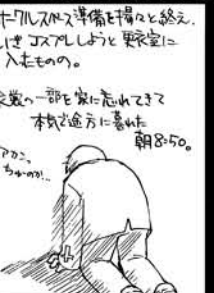 ークルスペース準備を揚々と終え、
いざ コスプレしようと 更衣室に
入ったものの。
衣装の一部を家に忘れてきて
本気で途方に暮れた
朝8:50。
アカン、